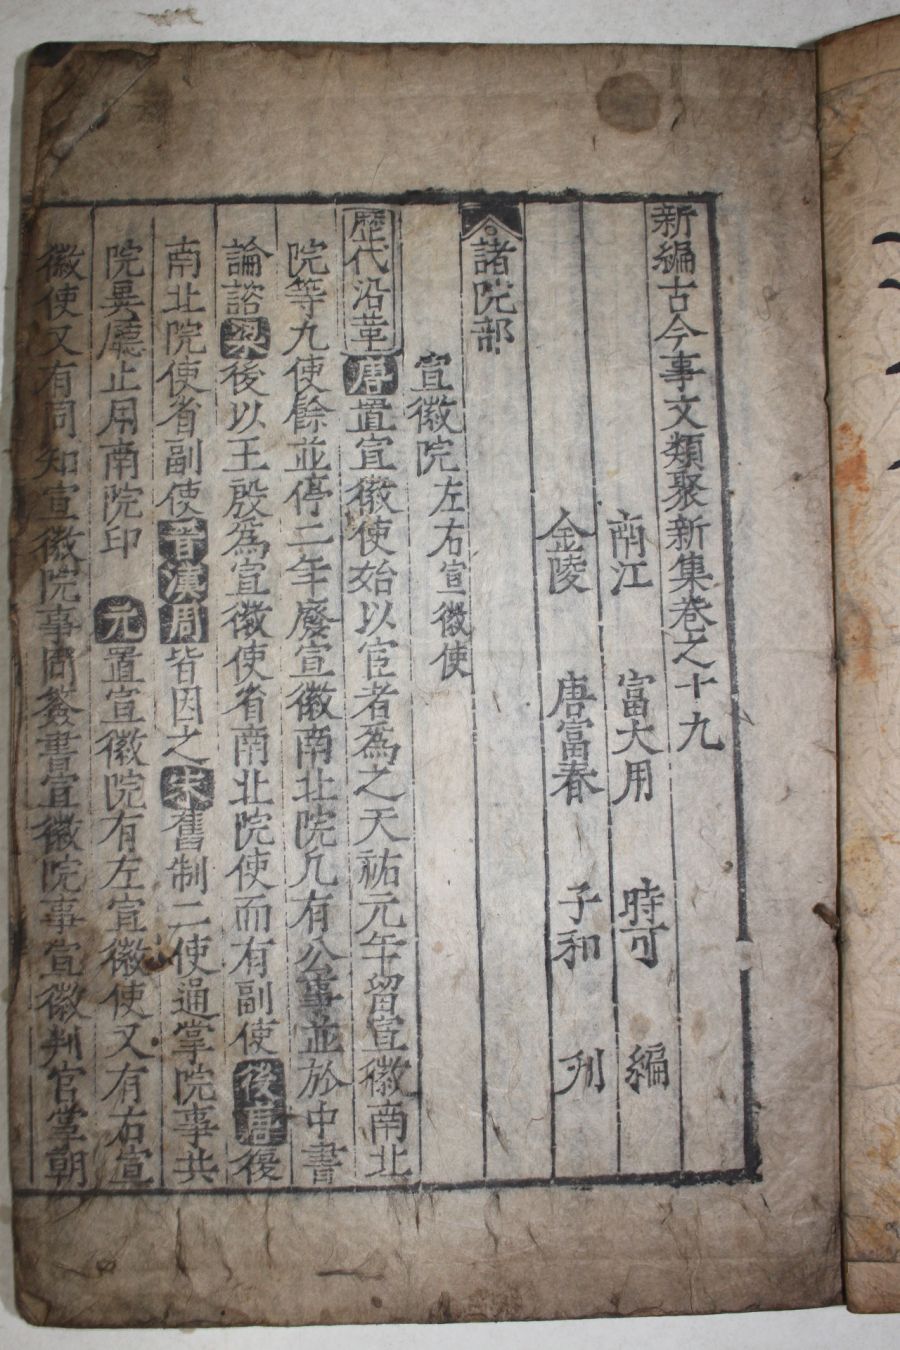 新編古今事文類聚新集卷之十九
南江 富大用 時可 編
金陵 唐富春 子和 刋
諸院部
宣徽院左右宣徽使
歷代沿革唐置宣徽使始以宦者爲之天祐元年留宣徽南北
院等九使餘並停二年廢宣徽南北院凡有公事並於中書
論諮梁後以王殷爲宣徽使省南北院使而有副使後唐復
南北院使省副使晉漢周皆因之宋舊制二使通掌院事共
院異廳止用南院印 元置宣徽院有左宣徽使又有右宣
徽使又有同知宣徽院事同簽書宣徽院事宣徽判官掌朝